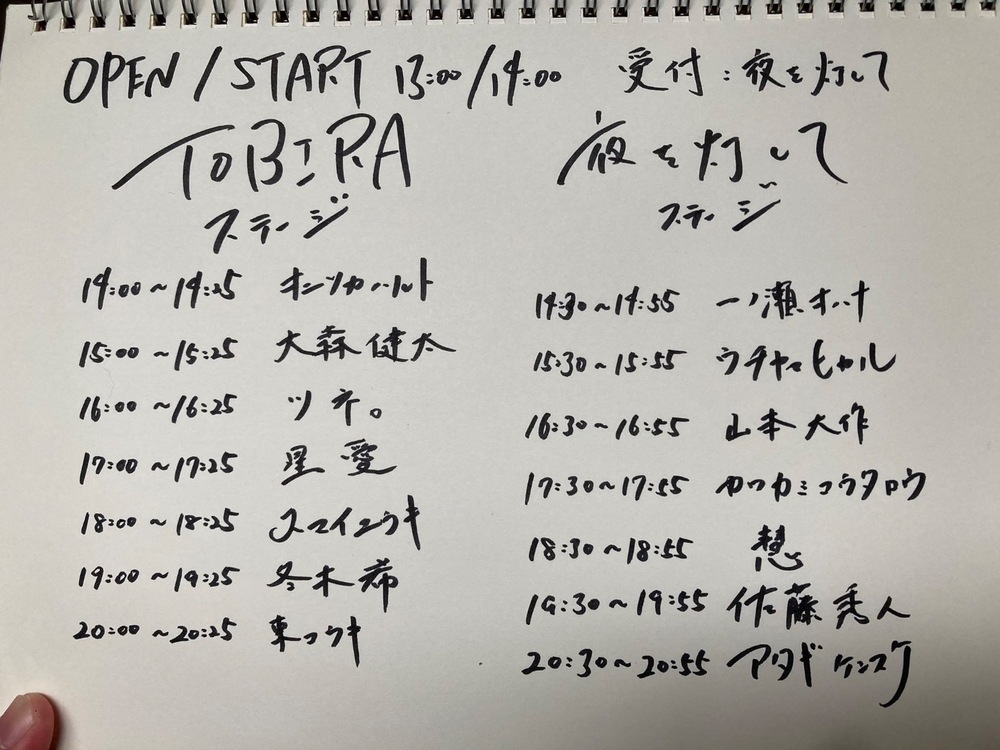 OPEN / START 13:00/14:00 受付:夜を灯して
TOBIRA
ステージ
14:00~14:25
15:00~15:25 大森健太
16:00~16:25 ツネ。
17:00~17:25 星 愛
18:00~18:25 スマイユウキ
19:00~19:25 冬木 希
20:00~20:25 東コウキ
夜を灯して
ステージ
14:30~14:55 一ノ瀬オハナ
15:30~15:55 ウチヤマヒカル
16:30~16:55 山本大作
17:30~17:55 カワカミコウタロウ
18:30~18:55 慧
19:30~19:55 佐藤秀人
20:30~20:55 アタギ ケンスケ